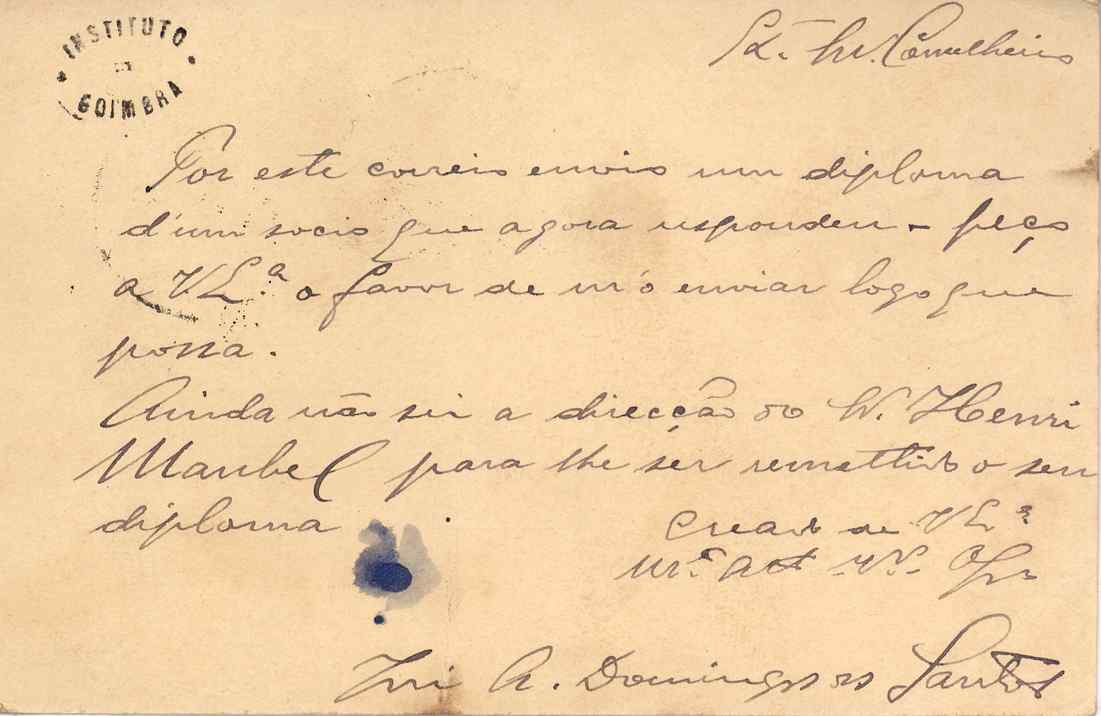 INSTITUTO
DE
COIMBRA
Ex.mo Sr. Conselheiro
Por este correio envio um diploma
d'um socio que agora respondeu - peço
a V Ex.ª o favor de m'o enviar logo que
possa.
Ainda não sei a direcção do W. Henri
Maubel para lhe ser remettido o seu
diploma
Creado de V Ex.ª
m.to att.
José A. Domingos dos Santos